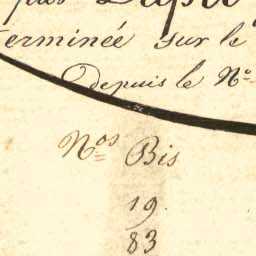 par
terminée sur le
depuis le Nº
Nos Bis
19.
83